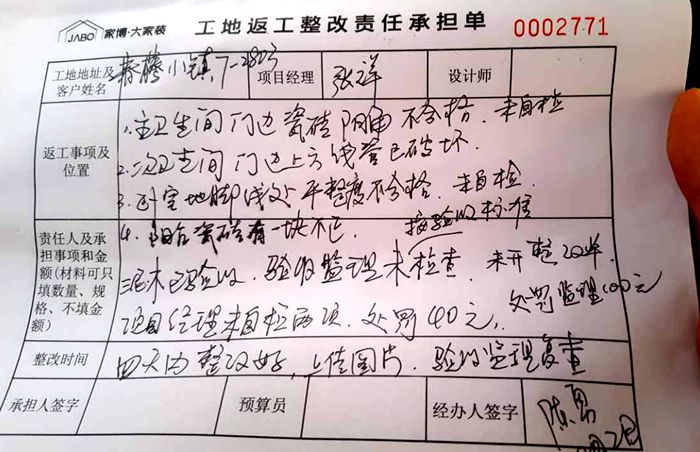 JABO 家博·大家装 工地返工整改责任承担单 0002771
工地地址及客户姓名 春藤小镇 7-2823 项目经理 张祥 设计师
返工事项及位置
1.主卫生间门边瓷砖阴角不合格.未自检
2.次卫生间门边上方线管已破坏.
3.卧室地脚线处平整度不合格.未自检.
4.阳台瓷砖有一块不正
责任人及承担事项和金额(材料可只填数量、规格、不填金额)
按验收标准
泥木已验收.验收监理未检查.未开整改单.
处罚监理100元
项目经理未自检两项.处罚40元,
整改时间 四天内整改好,上传图片.验收监理复查
承担人签字 预算员 经办人签字 陈勇